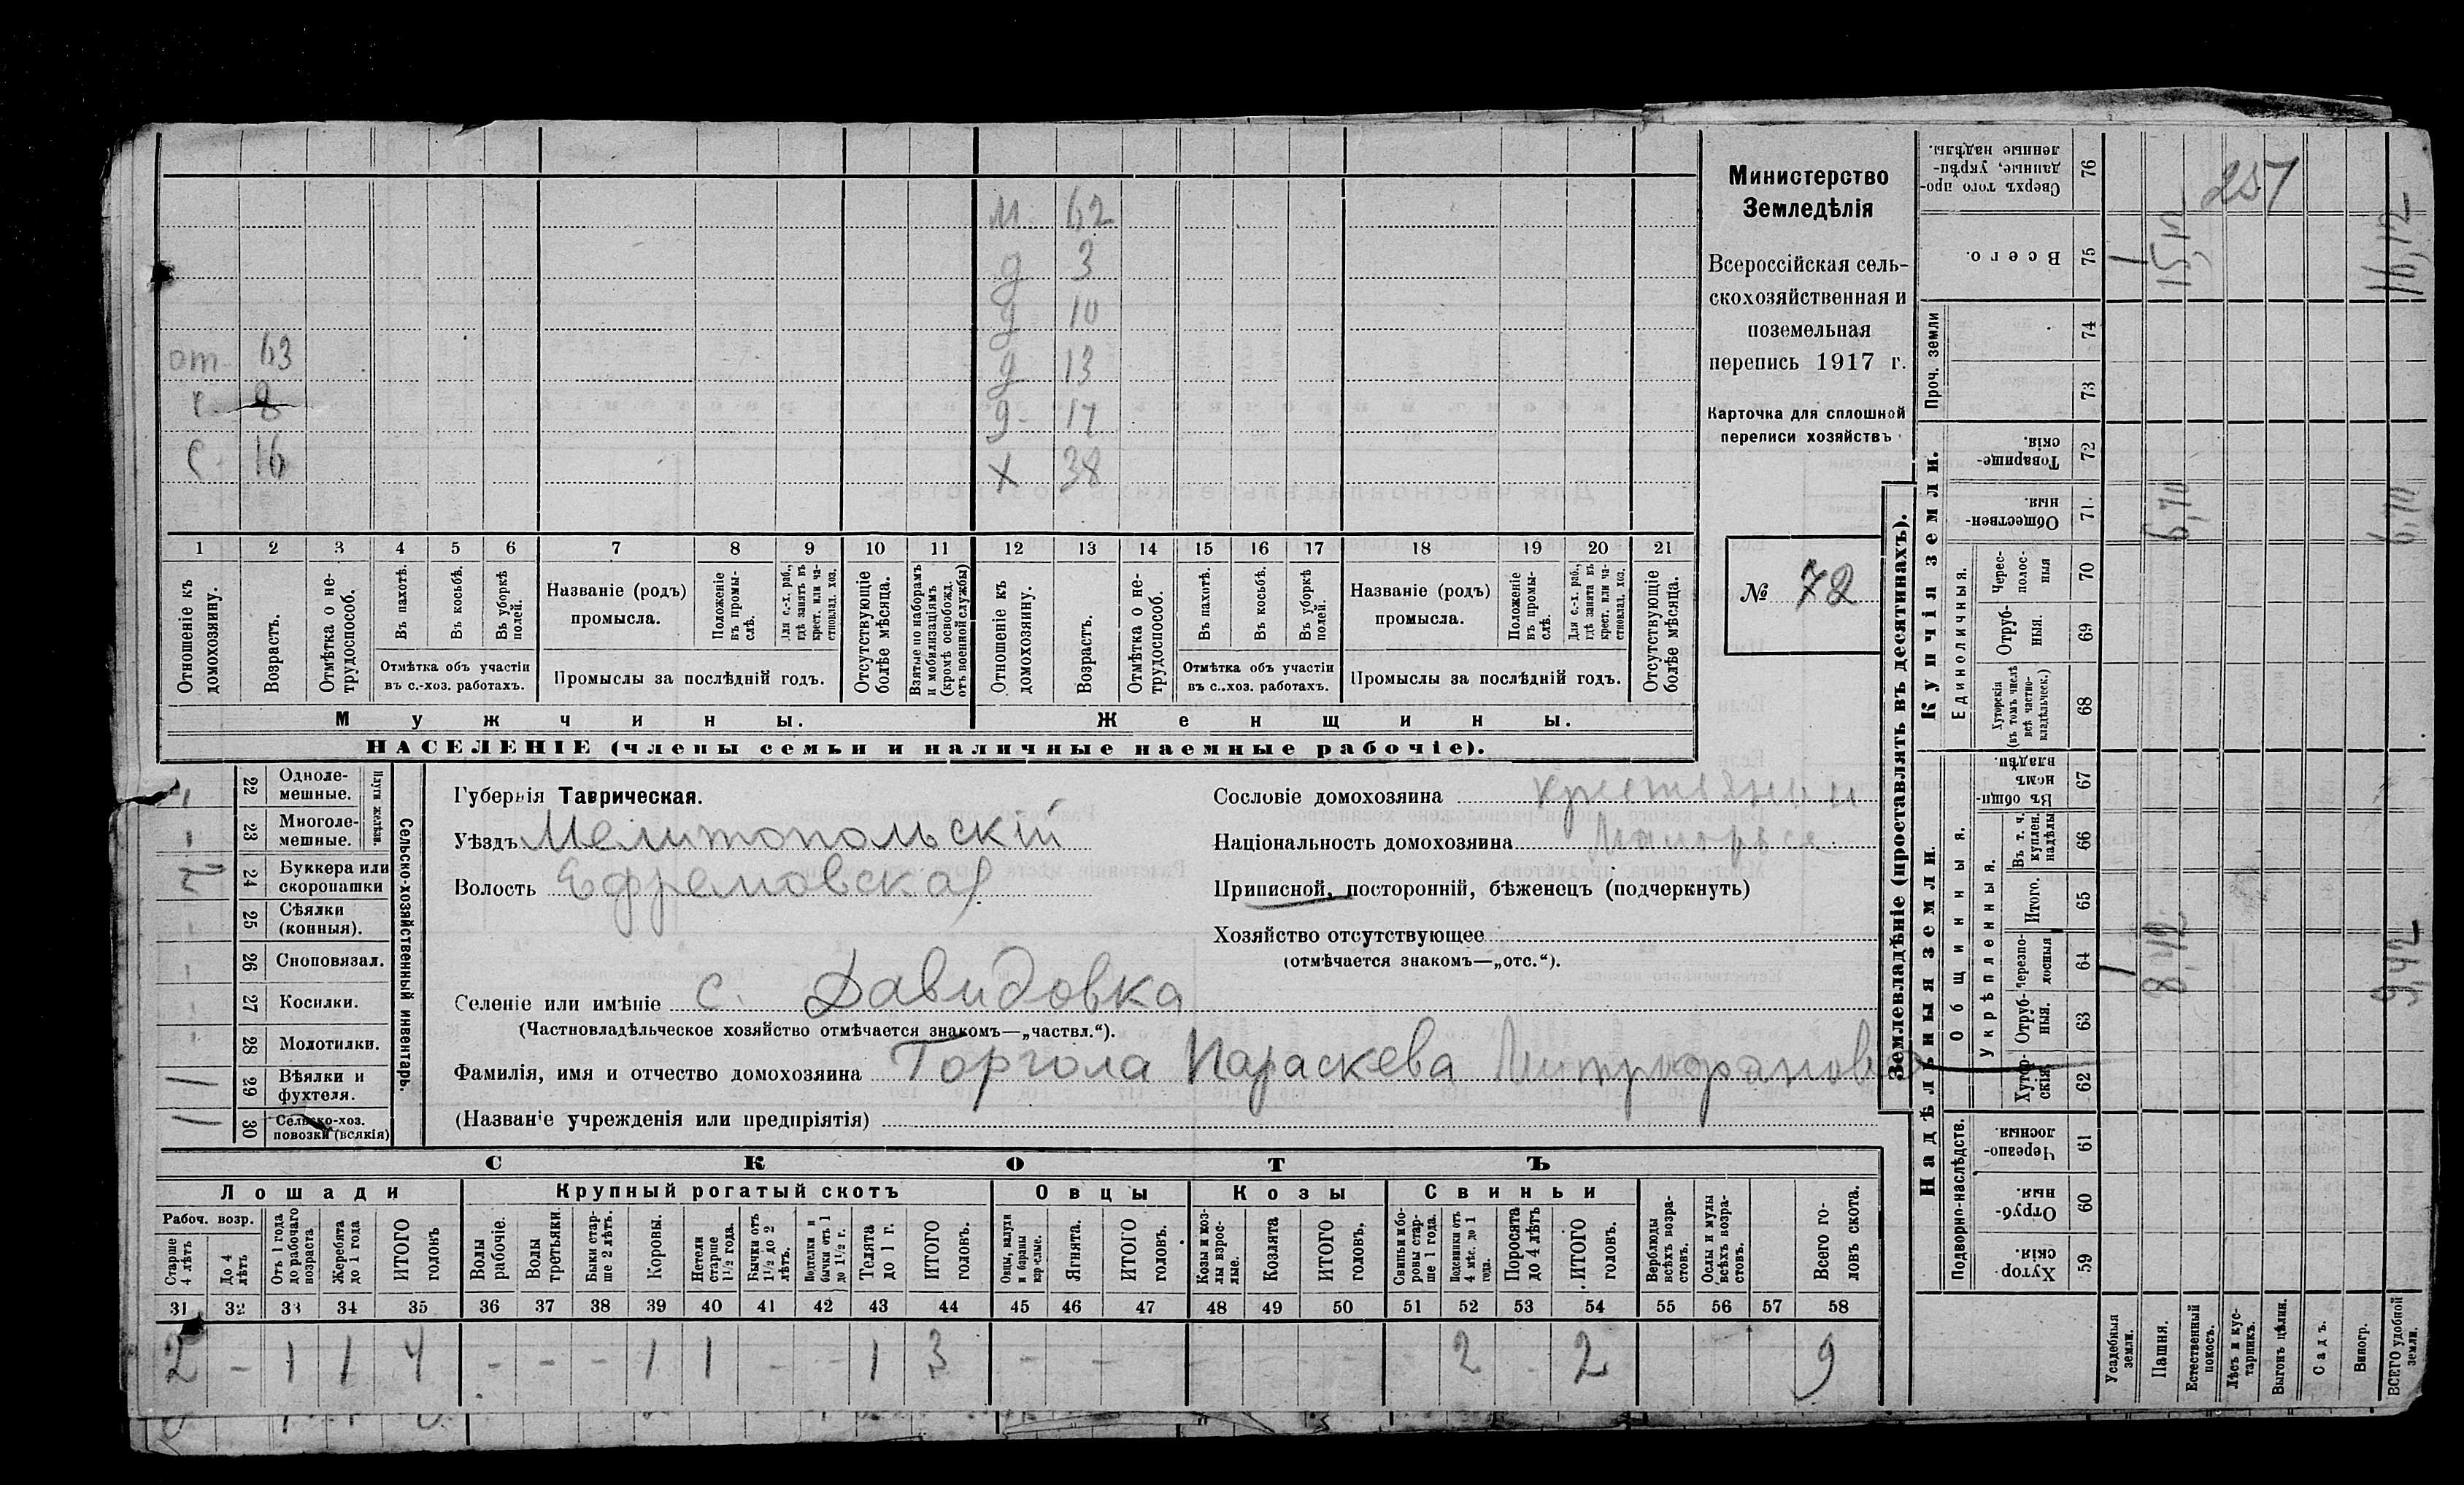 Министерство
Земледѣлія
Всероссійская сель-
скохозяйственная и
поземельная
перепись 1917 г.
Карточка для сплошной
переписи хозяйствъ
№ 72
м 62
д 3
д 10
от 63 д 13
с 8 д 17
с 16 х 38
1 2 3 4 5 6 7 8 9 10 11 12 13 14 15 16 17 18 19 20 21
Отношеніе къ домохозяину.
Возрастъ.
Отмѣтка о не-трудоспособ.
Въ пахотѣ.
Въ косьбѣ.
Въ уборкѣ полей.
Отмѣтка объ участіи въ с.-хоз. работахъ.
Названіе (родъ) промысла.
Положеніе въ промы-слѣ.
Для с.-х. раб., гдѣ занятъ въ крест. или ча-стновлад. хоз.
Промыслы за послѣдній годъ.
Отсутствующіе болѣе мѣсяца.
Взятые по наборамъ и мобилизаціямъ (кромѣ освобожд. отъ военной службы)
Отношеніе къ домохозяину.
Возрастъ.
Отмѣтка о не-трудоспособ.
Въ пахотѣ.
Въ косьбѣ.
Въ уборкѣ полей.
Отмѣтка объ участіи въ с.-хоз. работахъ.
Названіе (родъ) промысла.
Положеніе въ промы-слѣ.
Для с.-х. раб., гдѣ занята въ крест. или ча-стновлад. хоз.
Промыслы за послѣдній годъ.
Отсутствующіе болѣе мѣсяца.
Мужчины. Женщины.
НАСЕЛЕНІЕ (члены семьи и наличные наемные рабочіе).
Сельско-хозяйственный инвентарь.
Плуги желѣзн.
22 Одноле-мешные.
23 Многоле-мешные.
24 Буккера или скоропашки 2
25 Сѣялки (конныя).
26 Сноповязал.
27 Косилки.
28 Молотилки.
29 Вѣялки и фухтеля. 1
30 Сельско-хоз. повозки (всякія) 1
Губернія Таврическая.
Уѣздъ Мелитопольскій
Волость Ефремовская
Селеніе или имѣніе с. Давидовка
(Частновладѣльческое хозяйство отмѣчается знакомъ—„частвл.“).
Фамилія, имя и отчество домохозяина Торгола Параскева Митрофанова
(Названіе учрежденія или предпріятія)
Сословіе домохозяина крестьянин
Національность домохозяина Малоросс
Приписной, посторонній, бѣженецъ (подчеркнуть)
Хозяйство отсутствующее
(отмѣчается знакомъ—„отс.“).
СКОТЪ
Лошади Крупный рогатый скотъ Овцы Козы Свиньи
Рабоч. возр.
Старше 4 лѣтъ
До 4 лѣтъ
Отъ 1 года до рабочаго возраста
Жеребята до 1 года
ИТОГО головъ
Волы рабочіе.
Волы третьяки.
Быки стар-ше 2 лѣтъ.
Коровы.
Нетели старше 1 1/2 года.
Бычки отъ 1 1/2 до 2 лѣтъ.
Подтелки и бычки отъ 1 до 1 1/2 г.
Телята до 1 г.
ИТОГО головъ.
Овцы, валухи и бараны взрослые.
Ягнята.
ИТОГО головъ.
Козы и коз-лы взрос-лые.
Козлята
ИТОГО головъ.
Свиньи и бо-ровы стар-ше 1 года.
Подсвинки отъ 4 мѣс. до 1 года.
Поросята до 4 лѣтъ
ИТОГО головъ.
Верблюды всѣхъ возра-стовъ.
Ослы и мулы всѣхъ возра-стовъ.
Всего го-ловъ скота.
31 32 33 34 35 36 37 38 39 40 41 42 43 44 45 46 47 48 49 50 51 52 53 54 55 56 57 58
2 - 1 1 4 - - - 1 1 - - 1 3 - - - - - - 2 - 2 9
Землевладѣніе (проставлять въ десятинахъ).
Надѣльныя земли. Купчія земли.
Подворно-наслѣдств.
Общинныя.
Укрѣпленныя.
Единоличныя.
Проч. земли
Хутор-скія. 59
Отруб-ныя. 60
Черезпо-лосныя. 61
Хутор-скія. 62
Отруб-ныя. 63
Черезпо-лосныя 64
Итого. 65
Въ т. ч. куплен. надѣлы 66
Въ общин-номъ владѣн. 67
Хуторскія (въ томъ числѣ всѣ частно-владѣльческ.) 68
Отруб-ныя. 69
Черес-полос-ныя 70
Обществен-ныя. 71
Товарище-скія. 72
73
74
Всего. 75
Сверхъ того про-данные, укрѣп-ленные надѣлы. 76
Усадебныя земли. 1 1
Пашня. 8,42 6,70 15,12
Естественный покосъ.
Лѣсъ и кус-тарникъ.
Выгонъ цѣлин.
Садъ.
Виногр.
ВСЕГО удобной земли. 9,42 6,70 16,12
257